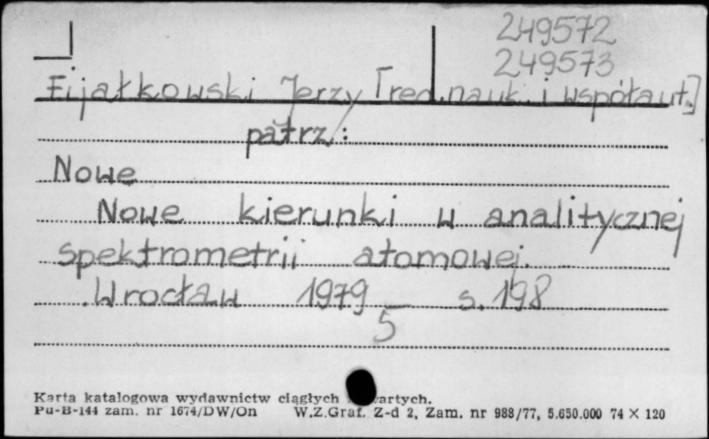 249572
249573
Fijałkowski Jerzy [red. nauk. i współaut.]
patrz:
Nowe
Nowe kierunki w analitycznej
spektrometrii atomowej.
Wrocław 1979 s. 198
5
Karta katalogowa wydawnictw ciągłych wartych.
Pu-B-144 zam. nr 1674/DW/On W.Z.Graf. Z-d 2, Zam. nr 988/77, 5.650.000 74 X 120